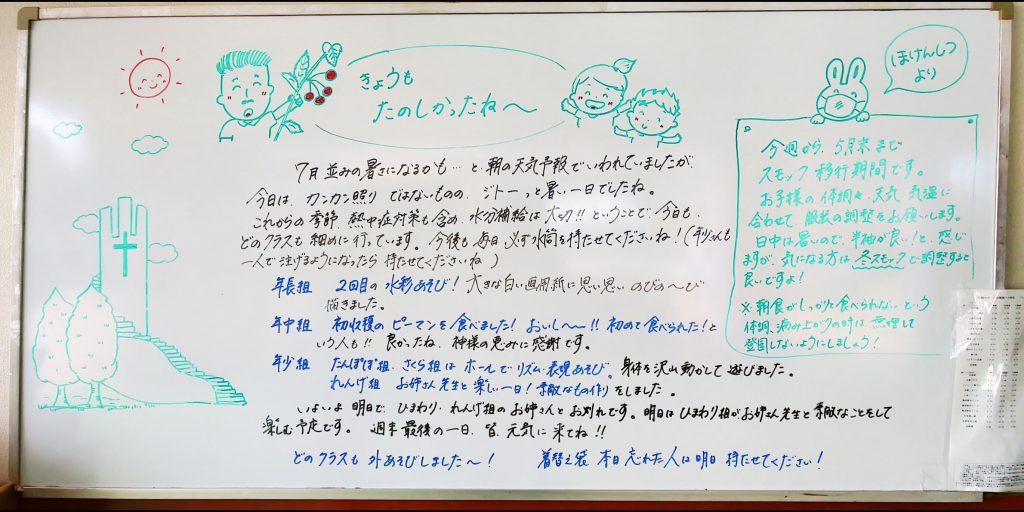 きょうも
たのしかったね〜
7月並みの暑さになるかも…と朝の天気予報でいわれていましたが、
今日は、カンカン照りではないものの、ジトーっと暑い一日でしたね。
これからの季節、熱中症対策も含め、水分補給は大切!!ということで、今日も、
どのクラスも細めに行っています。今後も毎日必ず水筒を持たせてくださいね!(年少さんも
一人で注げるようになったら持たせてくださいね)
年長組 2回目の水彩あそび!大きな白い画用紙に思い思いのび〜び
描きました。
年中組 初収穫のピーマンを食べました!おいし〜〜!!初めて食べられた!と
いう人も!!良かったね、神様の恵みに感謝です。
年少組 たんぽぽ組、さくら組はホールでリズム・表現あそび。身体を沢山動かして遊びました。
れんげ組 お姉さん先生と楽しい一日!素敵なもの作りをしました。
いよいよ明日で、ひまわり・れんげ組のお姉さんとお別れです。明日はひまわり組がお姉さん先生と素敵なことをして
楽しむ予定です。週末最後の一日、皆、元気に来てね!!
どのクラスも外あそびしました〜!
着替え袋 本日忘れた人は明日持たせてください!
ほけんしつ
より
今週から、5月末まで
スモック移行期間です。
お子様の体調や、天気、気温に
合わせて、服装の調整をお願いします。
日中は暑いので、半袖が良い!と、感じ
ますが、気になる方は冬スモックで調整すると
良いですよ!
※朝食がしっかりと食べられないという
体調、病み上がりの時は、無理して
登園しないようにしましょう!